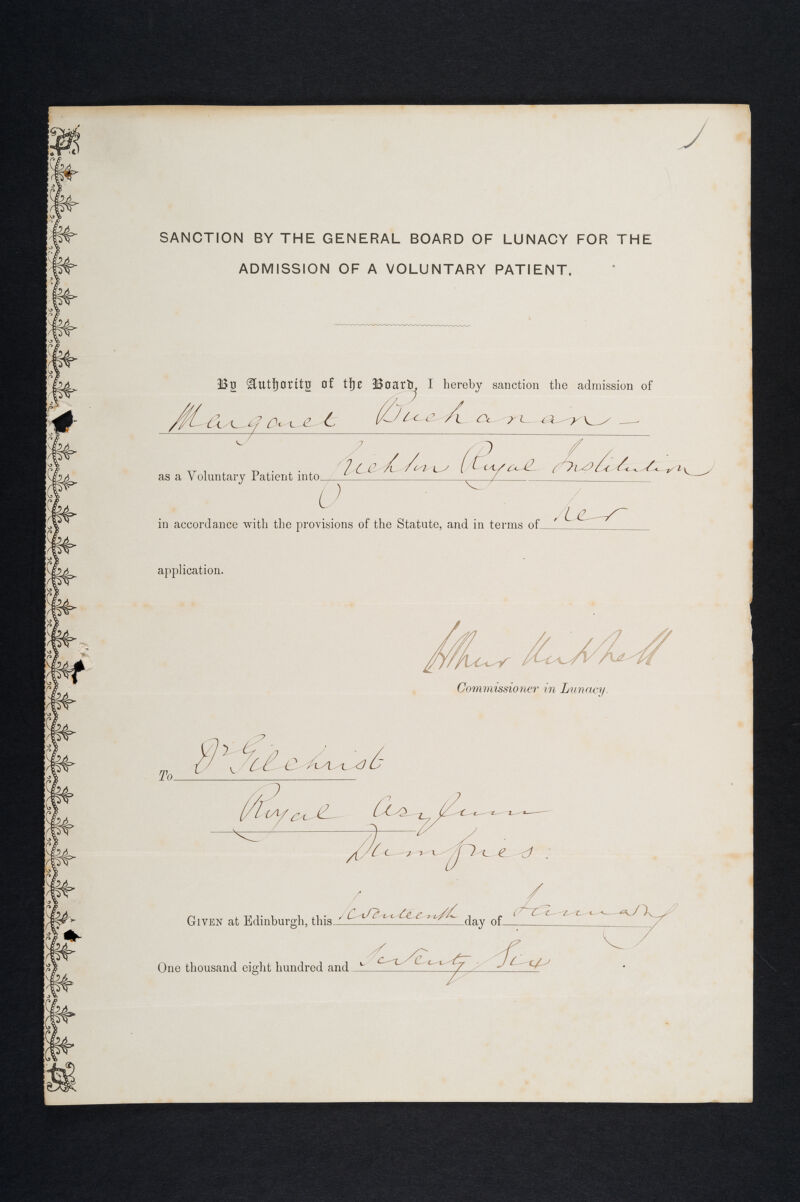 SANCTION BY THE GENERAL BOARD OF LUNACY FOR THE
ADMISSION OF A VOLUNTARY PATIENT.
By Authority of the Board, I hereby sanction the admission of
Margaret Buchanan —
as a Voluntary Patient into Crichton Royal Institution
in accordance with the provisions of the Statute, and in terms of her
application.
Arthur Mitchell
Commissioner in Lunacy.
To Dr Gilchrist
Royal Asylum
Dumfries.
GIVEN at Edinburgh, this Seventeenth day of January
One thousand eight hundred and Seventy Six